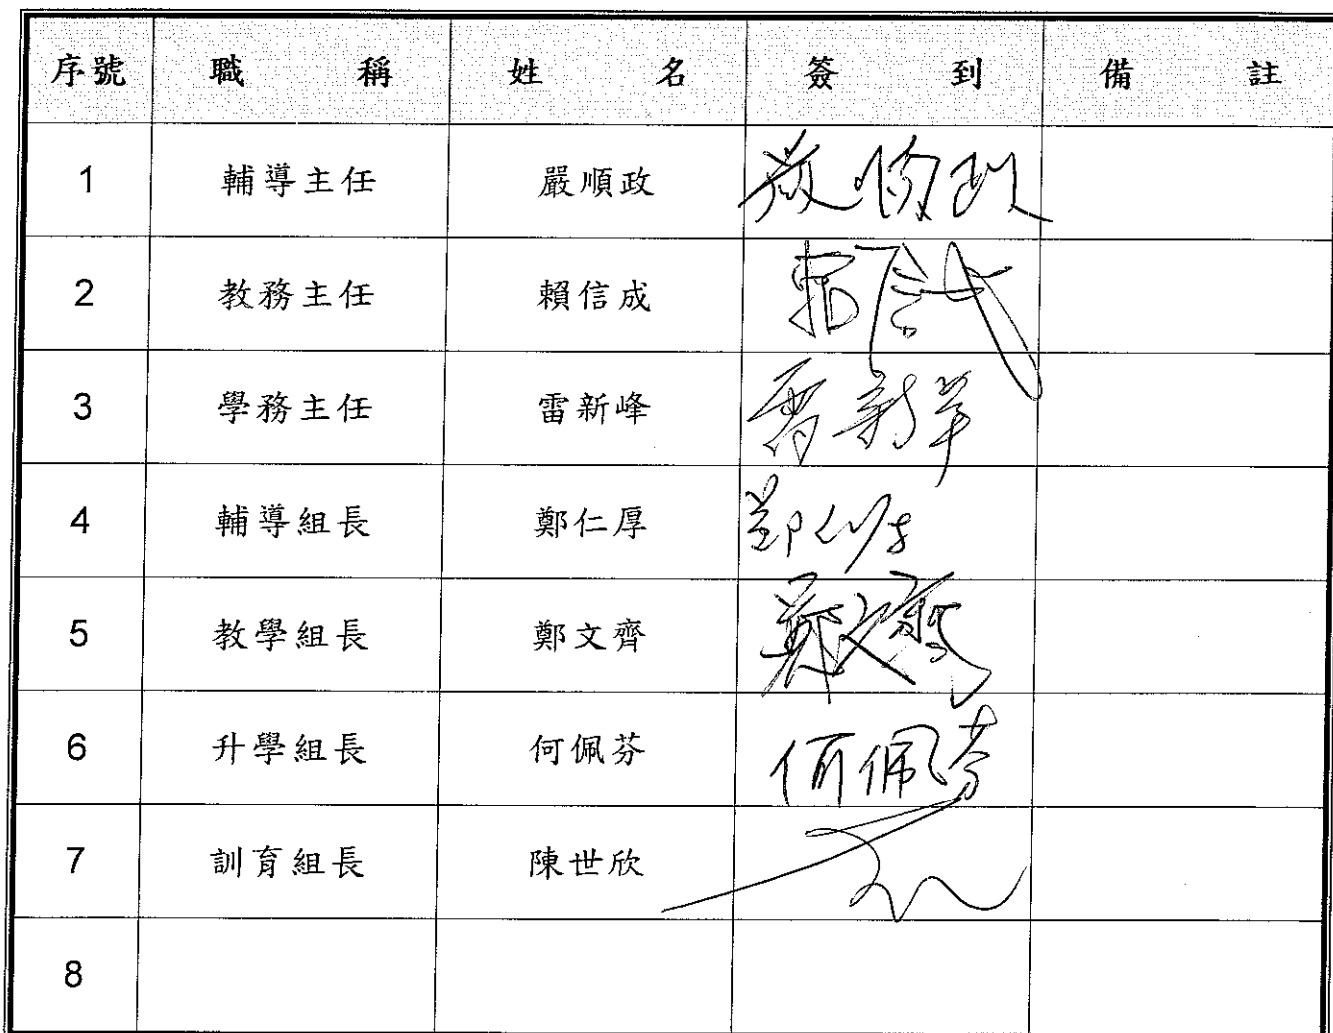 序號 職稱 姓名 簽到 備註
1 輔導主任 嚴順政 嚴順政
2 教務主任 賴信成 賴信成
3 學務主任 雷新峰 雷新峯
4 輔導組長 鄭仁厚 鄭仁厚
5 教學組長 鄭文齊 鄭文齊
6 升學組長 何佩芬 何佩芬
7 訓育組長 陳世欣
8